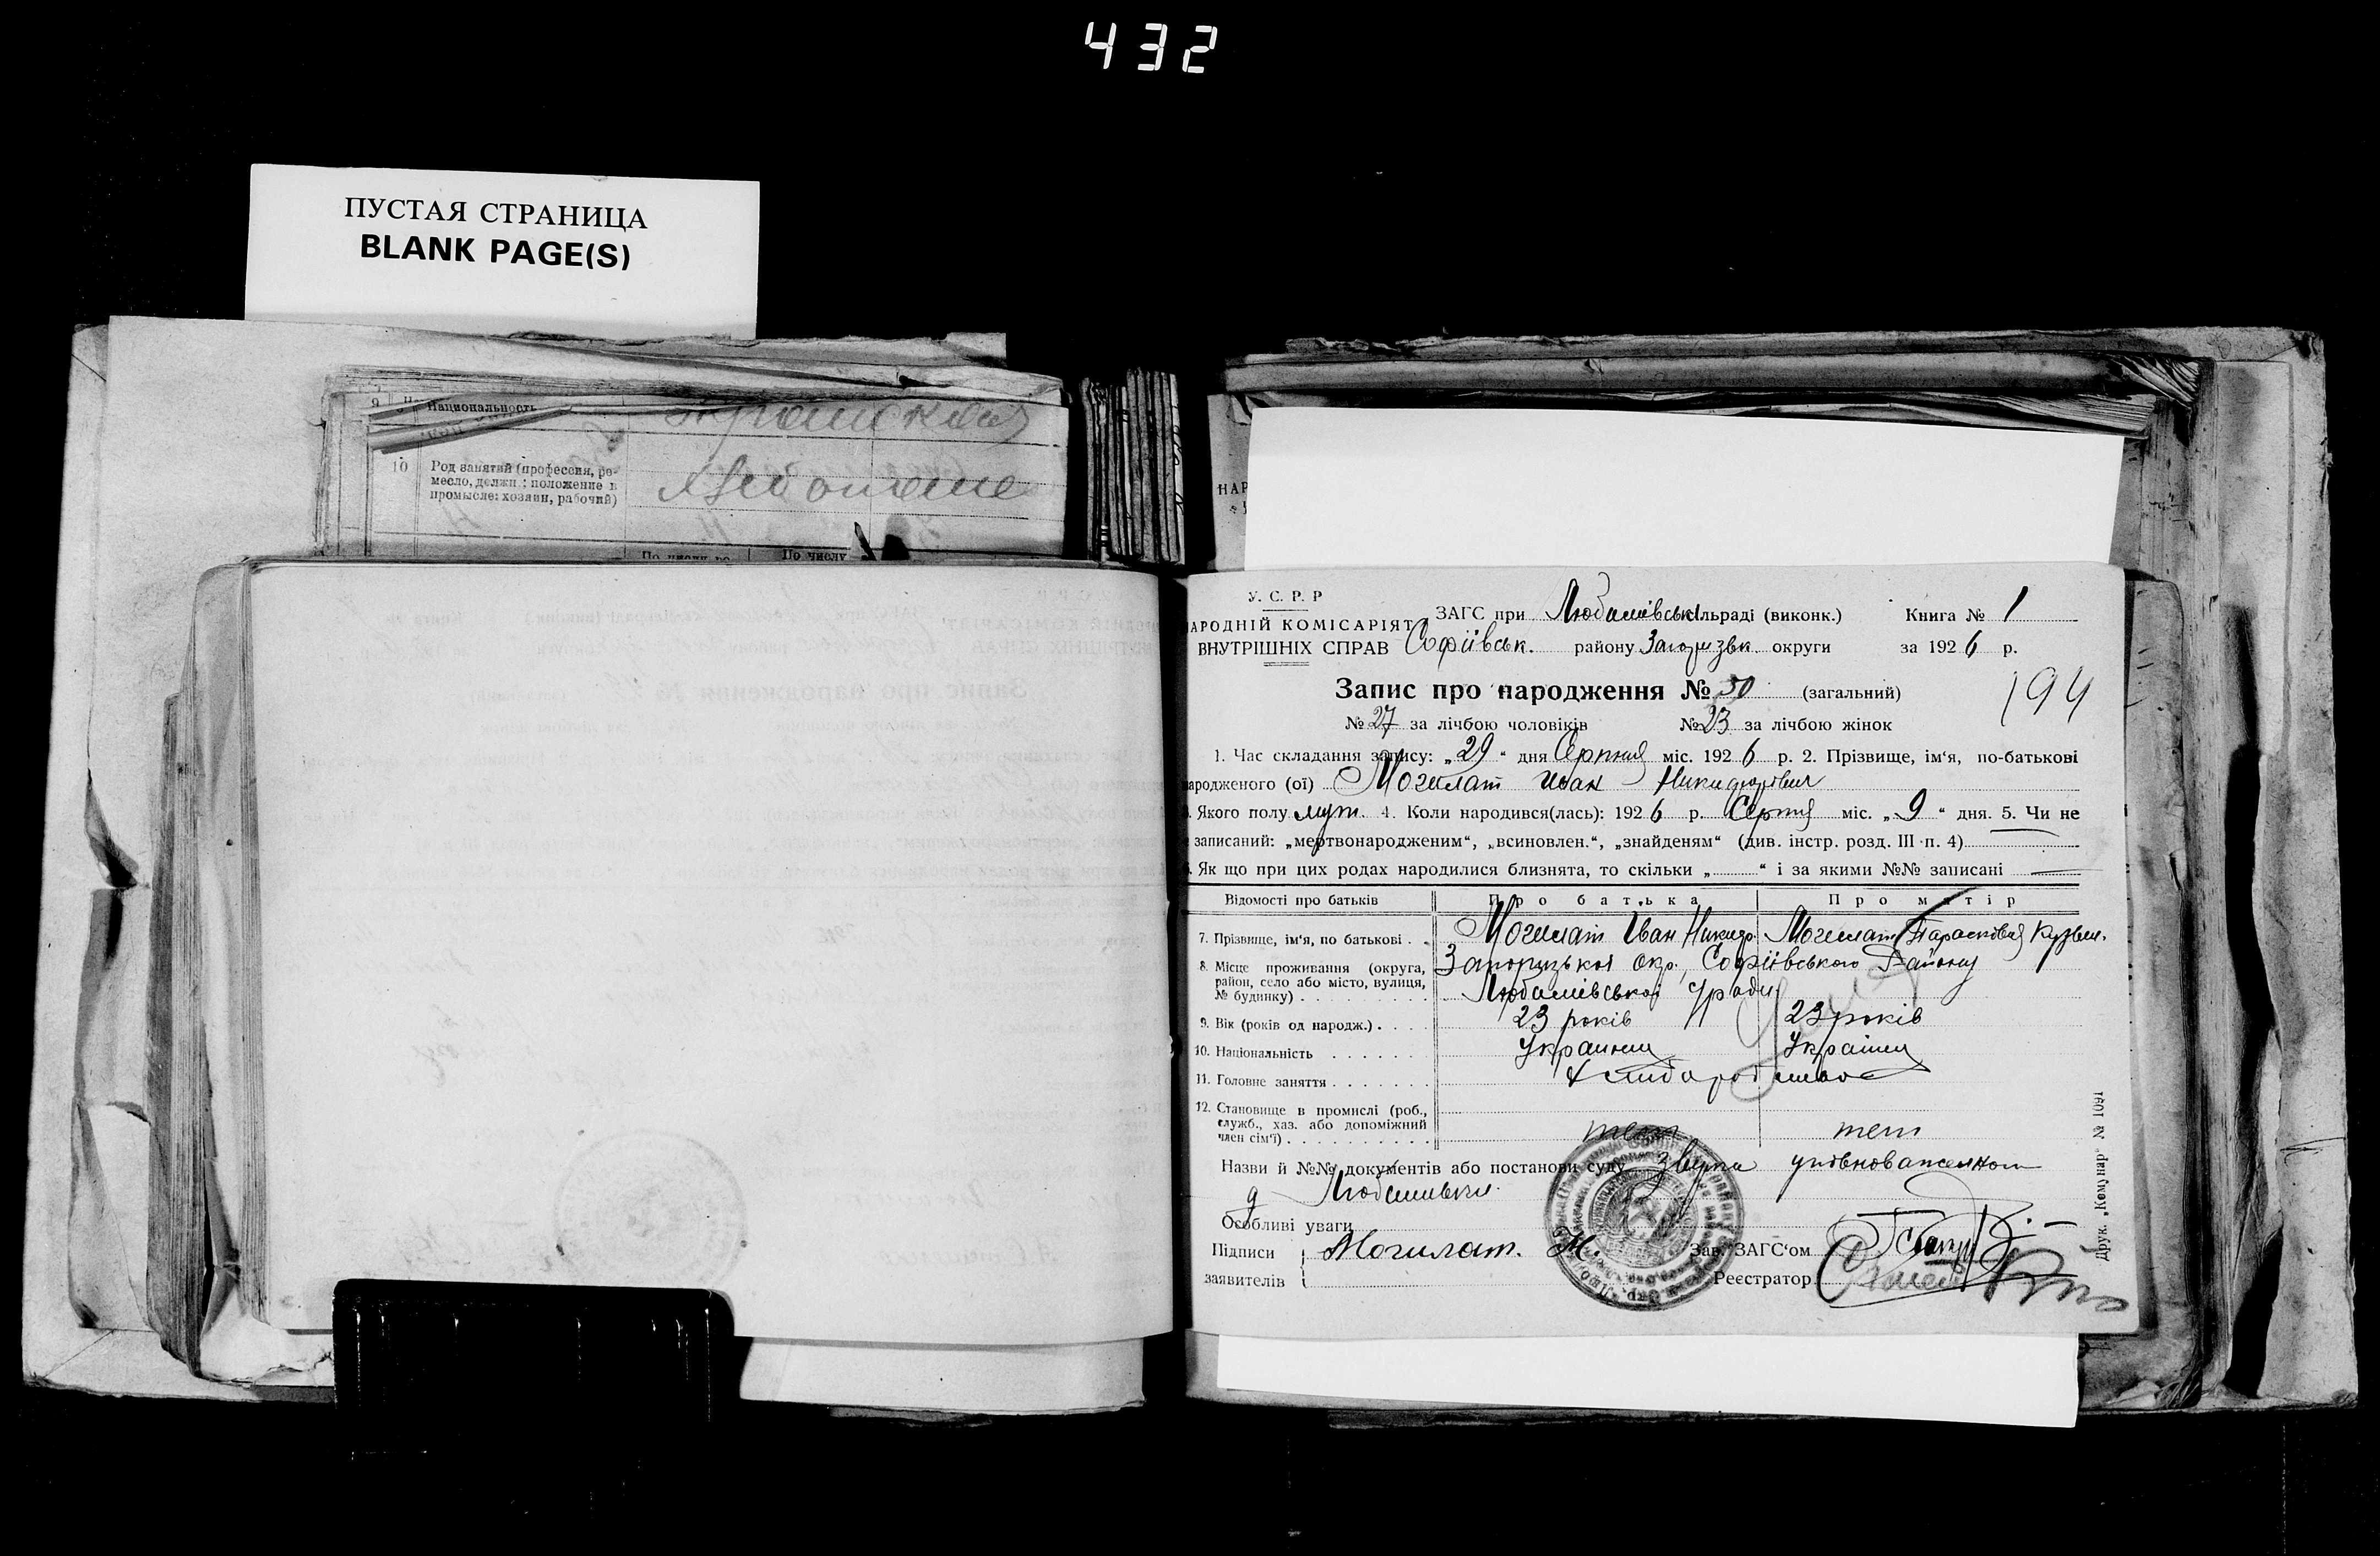 432
ПУСТАЯ СТРАНИЦА
BLANK PAGE(S)
9 Национальность
10 Род занятий (профессия, ре-
месло, должн.: положение в
промысле: хозяин, рабочий)
По числу
НАР
У. С. Р. Р
НАРОДНІЙ КОМІСАРІЯТ
ВНУТРІШНІХ СПРАВ
ЗАГС при Любимівській сільраді (виконк.) Книга № 1
Софіївськ. району Запорізьк округи за 1926 р.
Запис про народження № 50 (загальний)
194
№ 27 за лічбою чоловіків № 23 за лічбою жінок
1. Час складання запису: „29“ дня Серпня міс. 1926 р. 2. Прізвище, ім‘я, по-батькові
народженого (ої) Могилат Иван Никифорович
3. Якого полу муж. 4. Коли народився(лась): 1926 р. Серпня міс. „9“ дня. 5. Чи не
записаний: „мертвонародженим“, „всиновлен.“, „знайденям“ (див. інстр. розд. III п. 4)
6. Як що при цих родах народилися близнята, то скільки „ “ і за якими №№ записані
Відомості про батьків Про батька Про матір
7. Прізвище, ім‘я, по батькові . . Могилат Іван Никиф. Могилат Парасковія Кузьм.
8. Місце проживання (округа,
район, село або місто, вулиця,
№ будинку) . . . . . . . . .
Запорізької окр., Софіївського Району
Любимівської с/ради
9. Вік (років од народж.) . . . . 23 років 23 років
10. Національність . . . . . . . Українец Українка
11. Головне заняття . . . . . . . Хліборобство
12. Становище в промислі (роб.,
служб., хаз. або допоміжний
член сім‘ї) . . . . . . . . . .
член член
Назви й №№ документів або постанови суду уповноваженного
Любимівки
Особливі уваги
Підписи
заявителів
Могилат. Н.
Зав. ЗАГС‘ом
Реєстратор
Друк. „Комунар“ № 1091